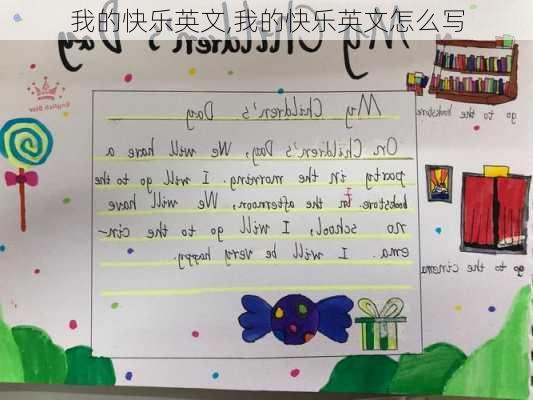 我的快乐英文,我的快乐英文怎么写
My Children's Day
English Show
go to the bookstore
My Children's Day
On Children's Day, We will have a
party in the morning. I will go to the
bookstore. In the afternoon, We will have
no school, I will go to the cin-
ema. I will be very happy.
go to the cinema